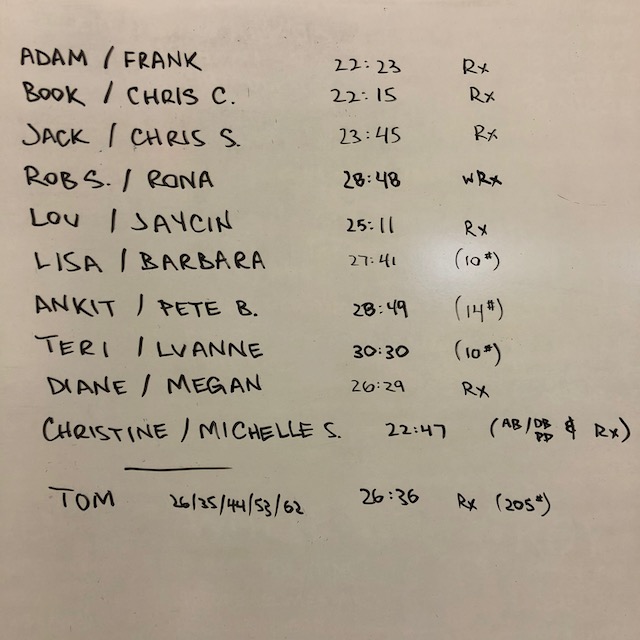 ADAM / FRANK 22:23 Rx
BOOK / CHRIS C. 22:15 Rx
JACK / CHRIS S. 23:45 Rx
ROB S. / RONA 28:48 WRx
LOU / JAYCIN 25:11 Rx
LISA / BARBARA 27:41 (10#)
ANKIT / PETE B. 28:49 (14#)
TERI / LUANNE 30:30 (10#)
DIANE / MEGAN 26:29 Rx
CHRISTINE / MICHELLE S. 22:47 (AB/DB PP & Rx)
TOM 26/35/44/53/62 26:36 Rx (205#)